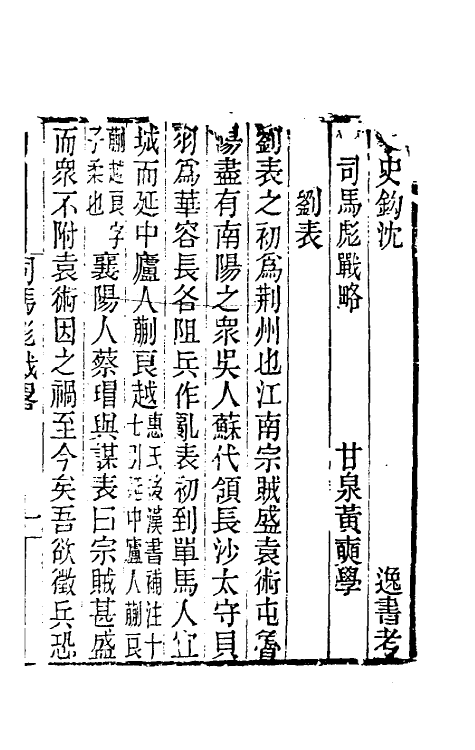 史鈎沈 逸書考
司馬彪戰略 甘泉黃奭學
劉表
劉表之初爲荆州也江南宗賊盛袁術屯魯
陽盡有南陽之衆吳人蘇代領長沙太守貝
羽爲華容長各阻兵作亂表初到單馬入宜
城而延中廬人蒯良越惠氏後漢書補注十
七引延中廬人蒯良
蒯越良字
子柔也襄陽人蔡瑁與謀表曰宗賊甚盛
而衆不附袁術因之禍至今矣吾欲徵兵恐
司馬彪戰畧 一